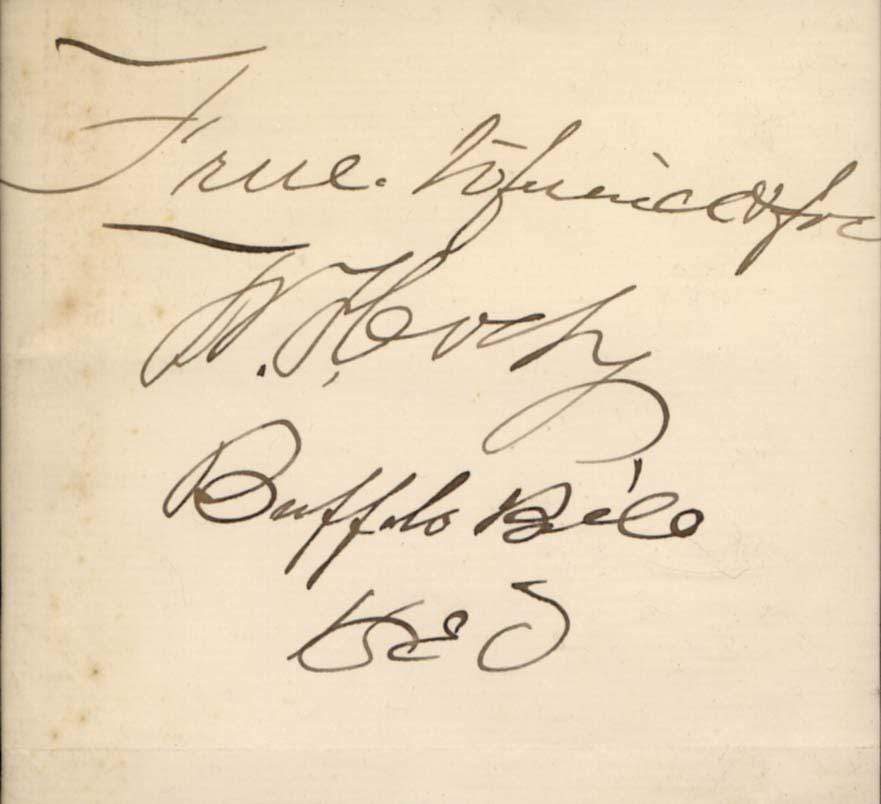 True to friend & foe
W. F. Cody
Buffalo Bill